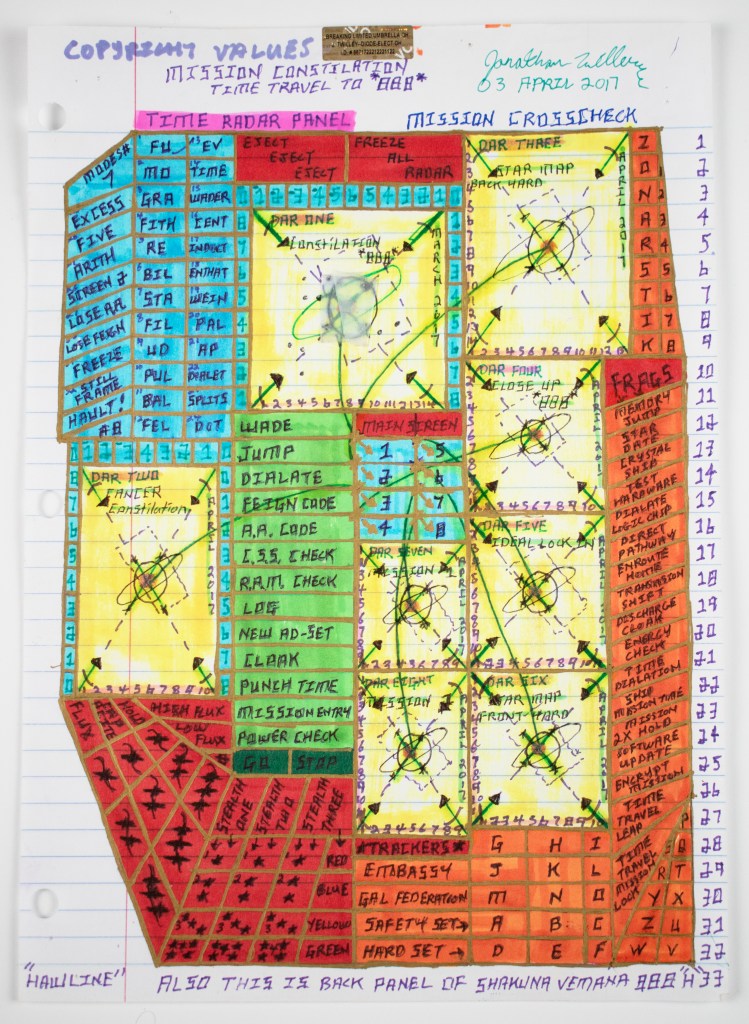 COPYRIGHT VALUES
BREAKING LIMITED UMBRELLA CH
MISSION CONSTILATION
TIME TRAVEL TO *888*
03 APRIL 2017
TIME RADAR PANEL
MISSION CROSSCHECK
MODES#
1
EXCESS
FIVE
ARITH
SCREEN 2
LOSE A.A.
LOSE FEIGN
FREEZE
STILL
FRAME
HAULT!
FU
EV
MO
TIME
GRA
WADER
FITH
CENT
RE
BIL
ENTHAT
STA
WEIN
FIL
PAL
UD
AP
PUL
DIALET
BAL
SPLITS
FEL
DOT
EJECT
EJECT
EJECT
FREEZE
ALL
RADAR
DAR ONE
CONSTILATION
*888*
MARCH 2017
1 2 3 4 5 6 7 8 9 10 11 12 13 14
DAR TWO
CANCER
CONSTILATION
APRIL 2017
1 2 3 4 5 6 7 8 9 10
DAR THREE
STAR MAP
BACK YARD
APRIL 2017
DAR FOUR
CLOSE UP
*888*
APRIL 2017
DAR FIVE
IDEAL LOCK IN
APRIL 2017
DAR SIX
STAR MAP
FRONT YARD
APRIL 2017
DAR SEVEN
MISSION 1
APRIL 2017
DAR EIGHT
MISSION 2
APRIL 2017
WADE
JUMP
DIALATE
FEIGN CODE
A.A. CODE
C.S.S. CHECK
R.A.M. CHECK
LOG
NEW AD-SET
CLOAK
PUNCH TIME
MISSION ENTRY
POWER CHECK
GO
STOP
MAIN SCREEN
1 5
2 6
3 7
4 8
Z
O
N
A
R
S
T
I
K
1
2
3
4
5
6
7
8
9
10
11
12
13
14
15
16
17
18
19
20
21
22
23
24
25
26
27
28
29
30
31
32
33
FRAGS
MEMORY
JUMP
STAR
DATE
CRYSTAL
SHIP
TEST
HARDWARE
DIALATE
LOGIC CHIP
DIRECT
PATHWAY
ENROUTE
HOME
TRANSMISSION
SHIFT
DISCHARGE
CLOAK
ENERGY
CHECK
TIME
DIALATION
SHIP
MISSION TIME
MISSION
2X HOLD
SOFTWARE
UPDATE
ENCRYPT
MISSION
TIME
TRAVEL
LEAP
TIME
TRAVEL
MISSION
LOCK
P
S Q
R T
Y X
Z U
W V
FLUX
HIGH FLUX
LOW
FLUX
STEALTH
ONE
STEALTH
TWO
STEALTH
THREE
RED
BLUE
YELLOW
GREEN
*TRACKERS*
G H I
EMBASSY
J K L
GAL FEDERATION
M N O
SAFETY SET→
A B C
HARD SET→
D E F
"HAWLINE"
ALSO THIS IS BACK PANEL OF SHAKUNA VEMANA 888 "H"